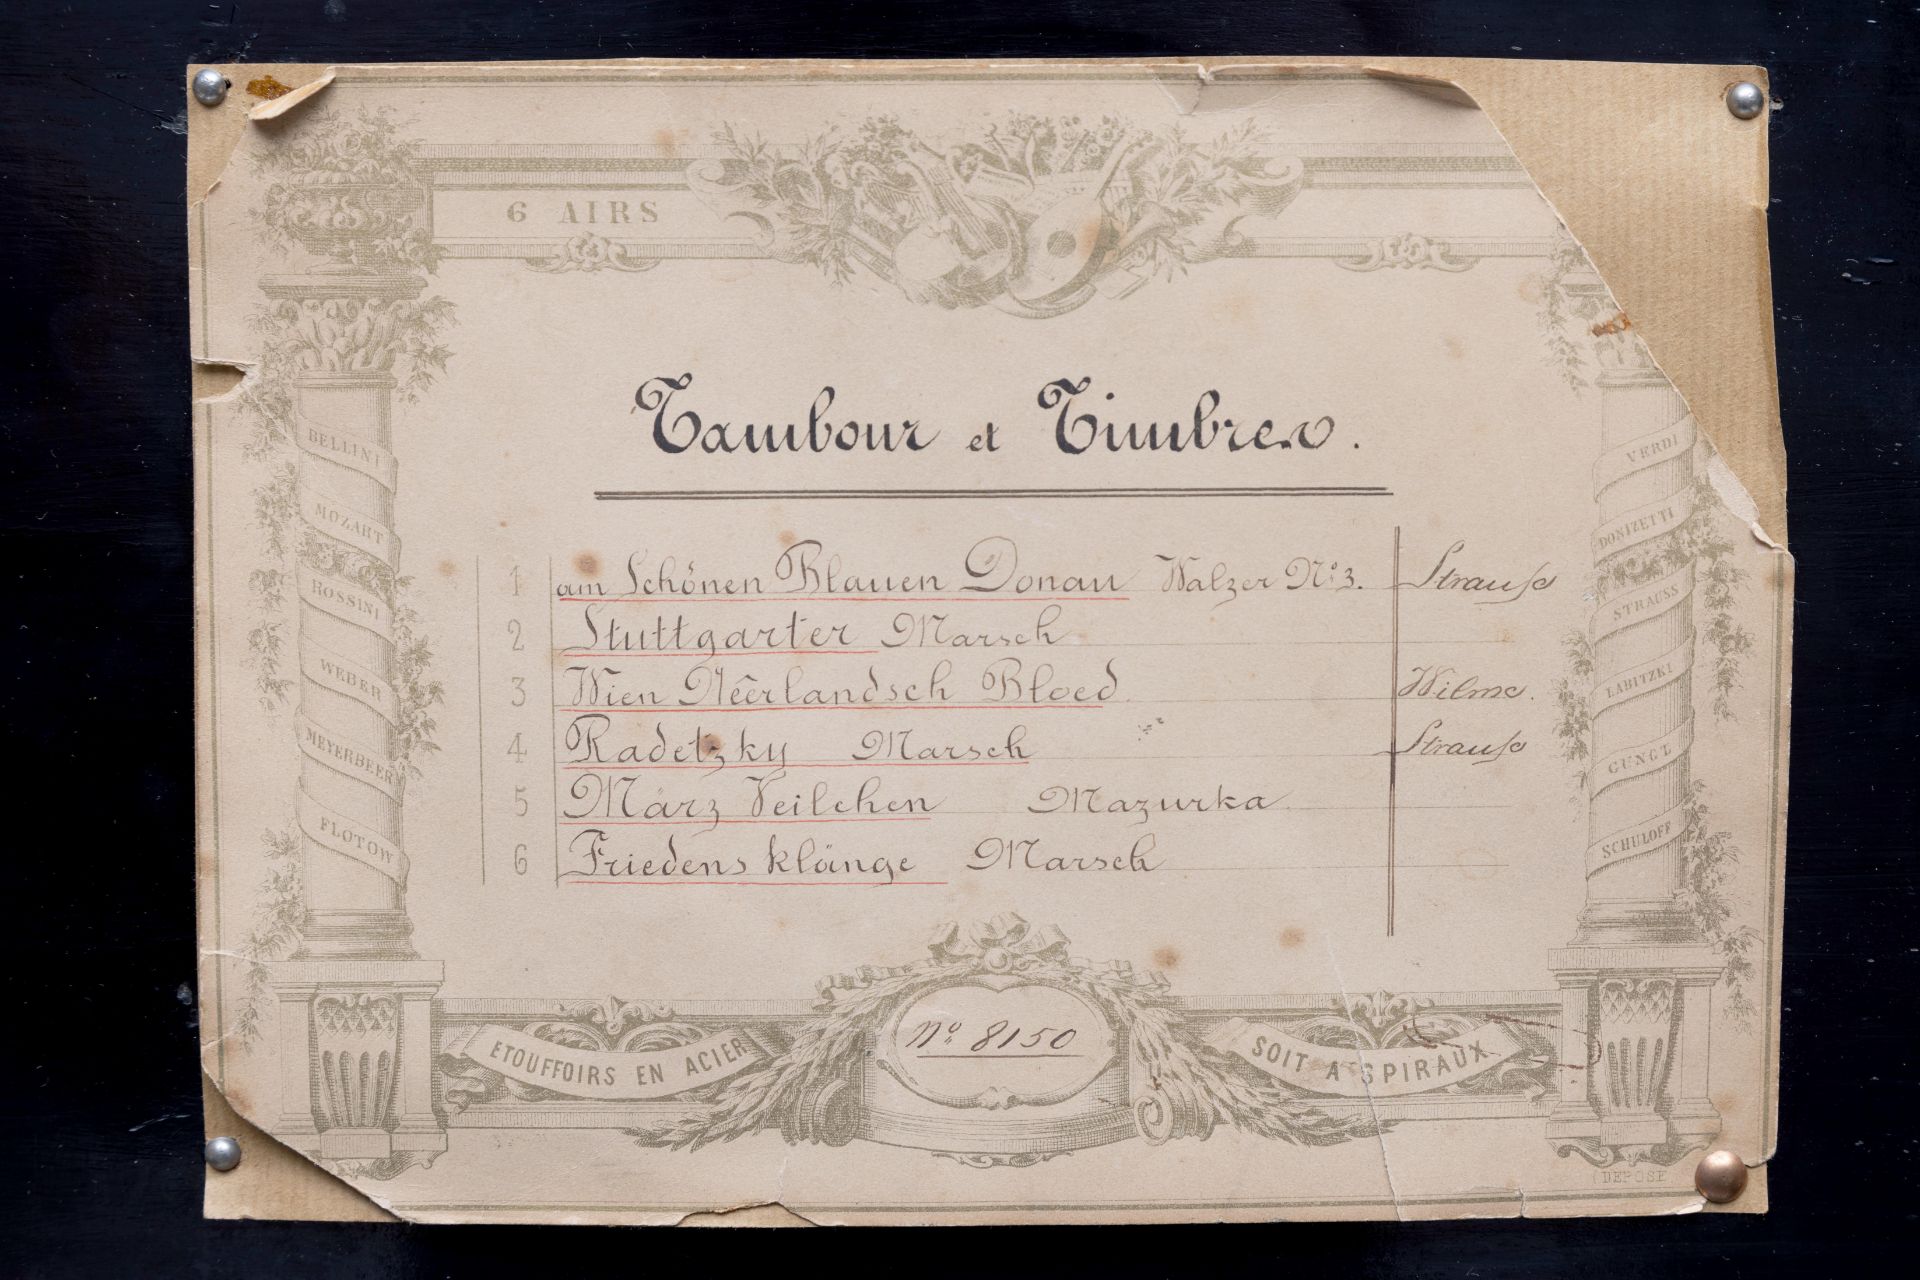 6 AIRS
Tambour et Timbres.
1 am Schönen Blauen Donau Walzer No 3. Strauss
2 Stuttgarter Marsch
3 Wien Nêerlandsch Bloed Wilms.
4 Radetzky Marsch Strauss
5 März Veilchen Mazurka
6 Friedens klänge Marsch
BELLINI
MOZART
ROSSINI
WEBER
MEYERBEER
FLOTOW
VERDI
DONIZETTI
STRAUSS
LABITZKI
GUNGL
SCHULOFF
ETOUFFOIRS EN ACIER
No 8150
SOIT A SPIRAUX
DEPOSE